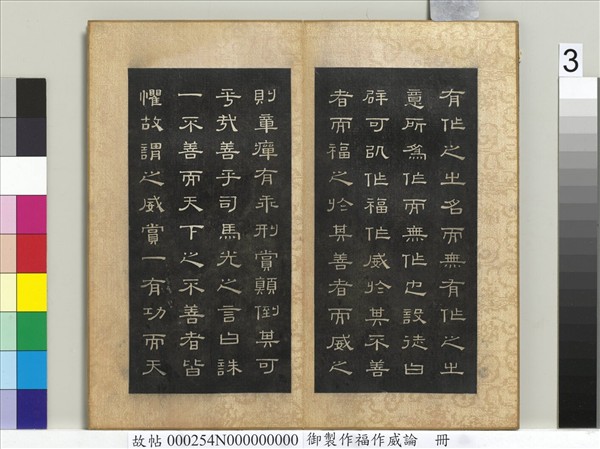 有作之之名而無有作之之
意所為作而無作也設徒曰
辟可以作福作威於其不善
者而福之於其善者而威之
則章癉有乖刑賞顛倒其可
乎哉善乎司馬光之言曰誅
一不善而天下之不善者皆
懼故謂之威賞一有功而天
3
故帖 000254N000000000 御製作福作威論 冊